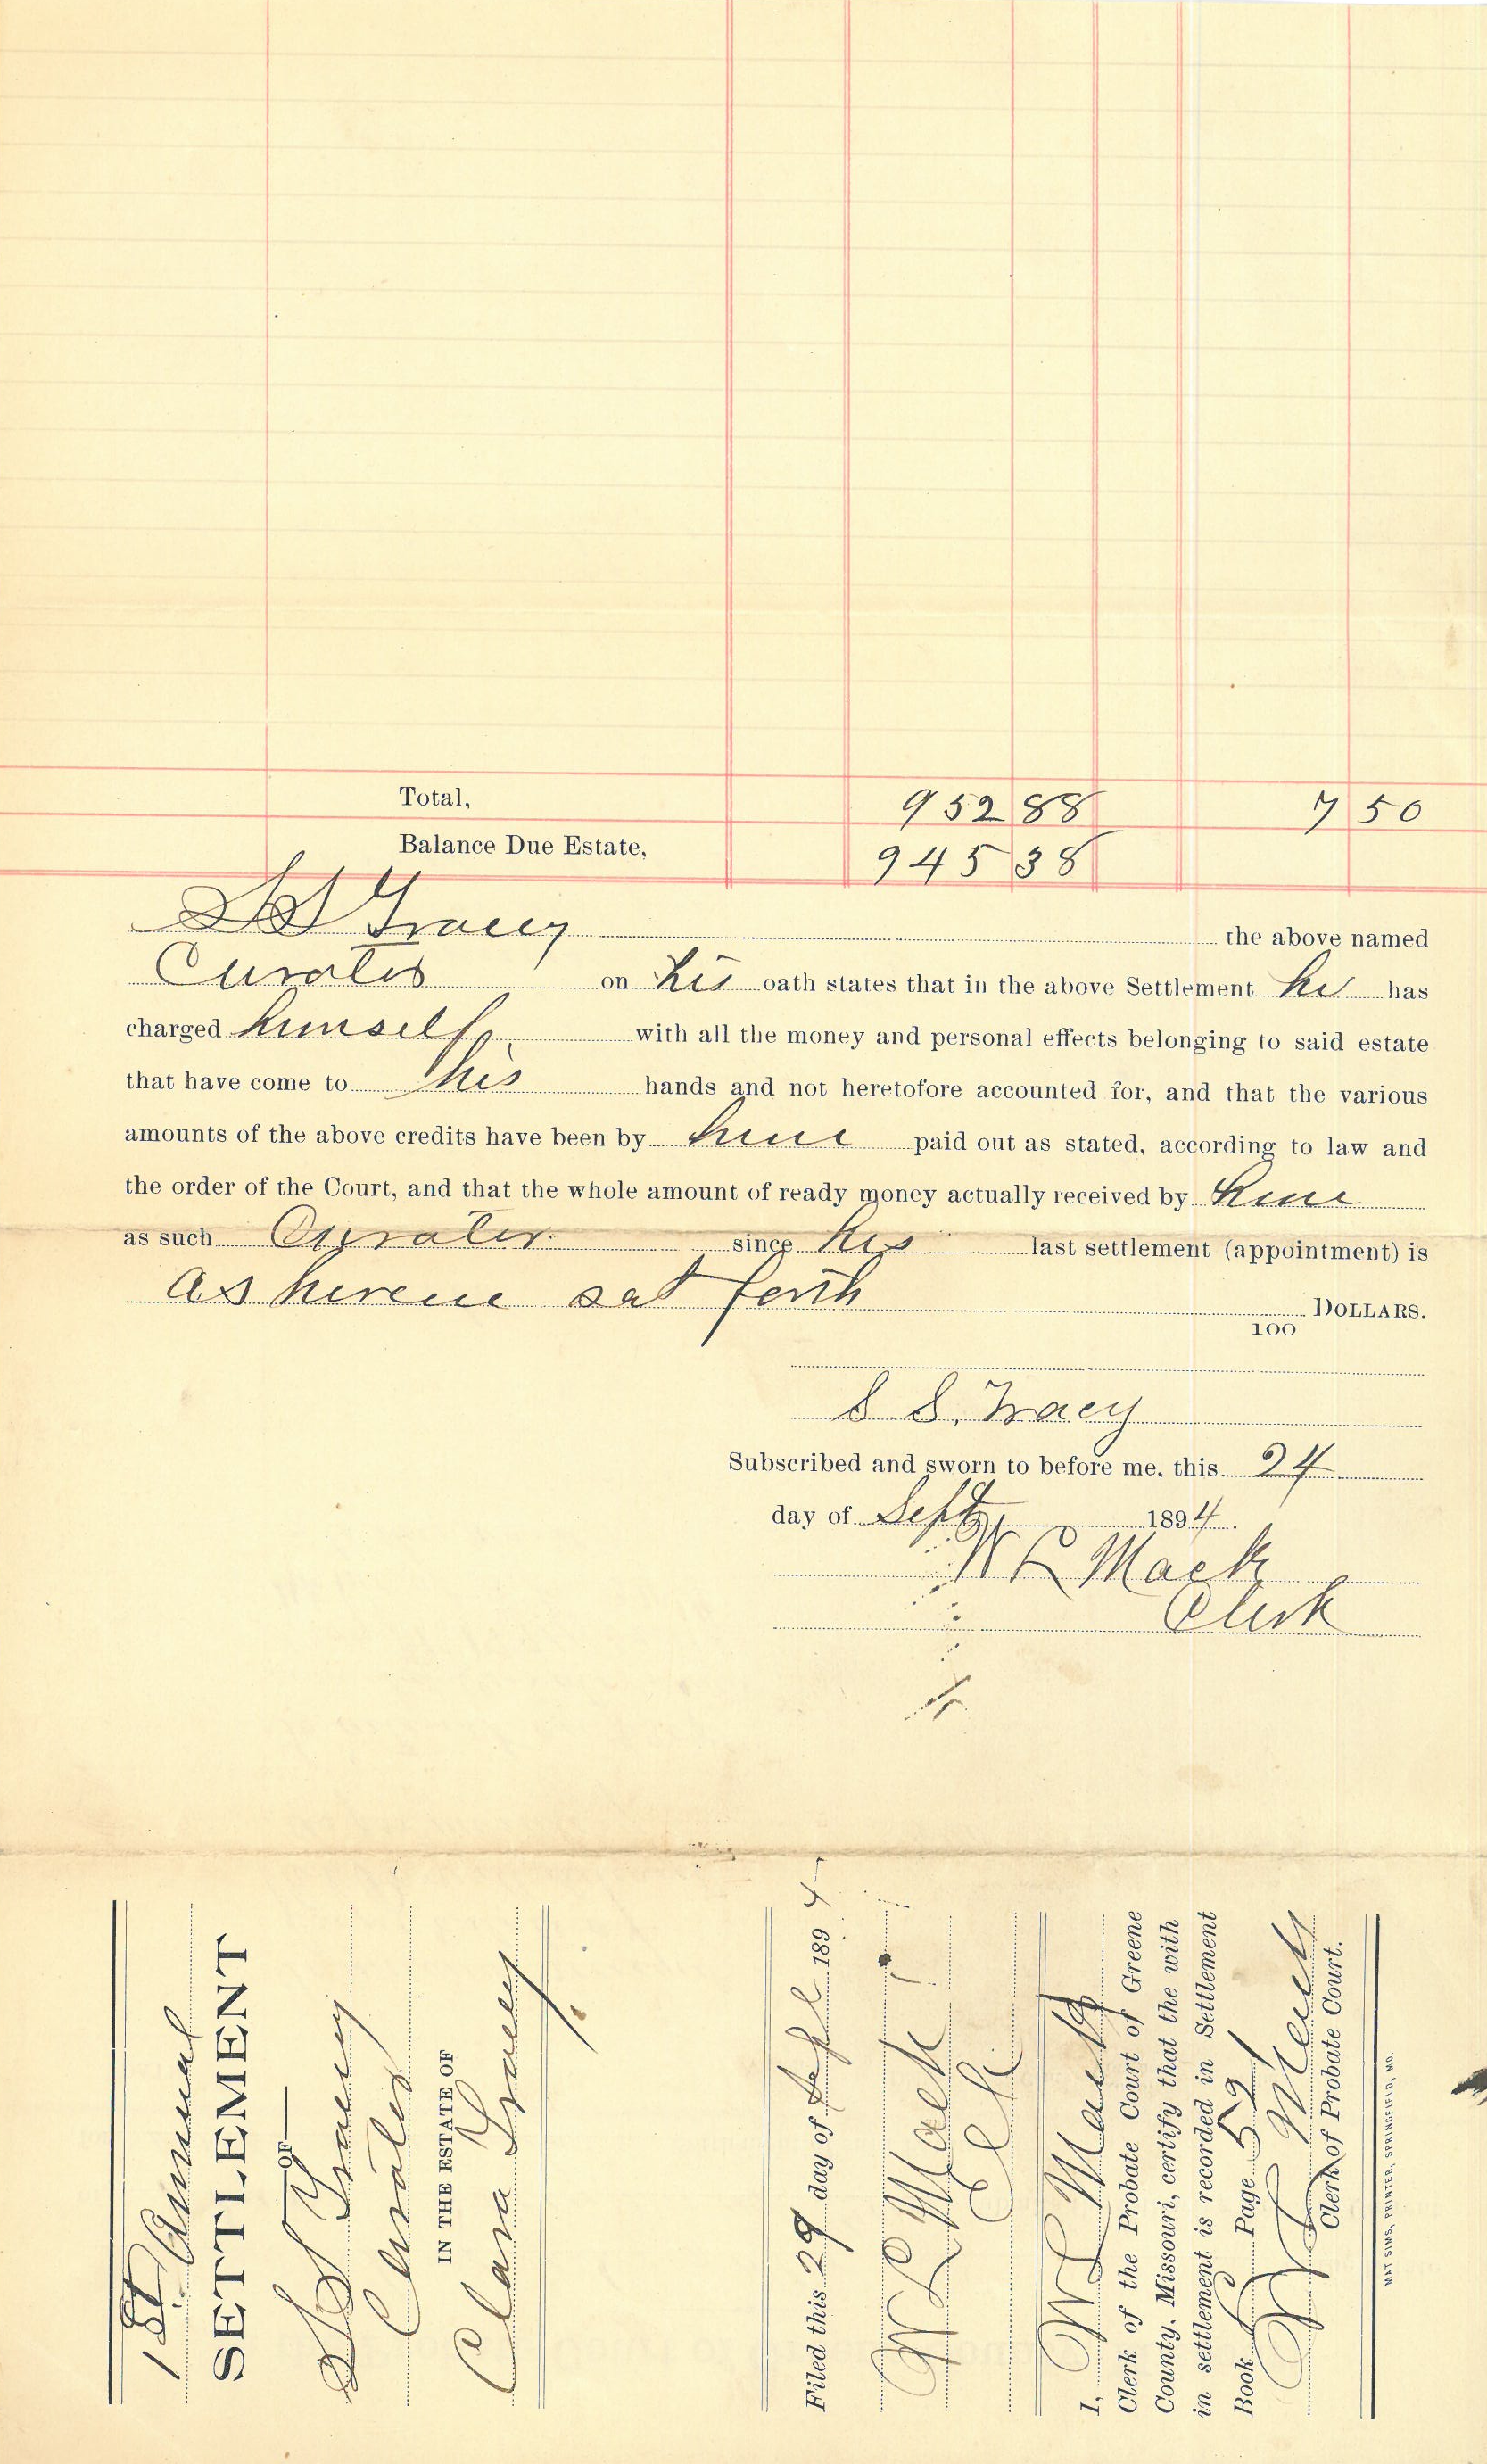 Total, 952 88 7 50
Balance Due Estate, 945 38
S S Tracey the above named
Curator on his oath states that in the above Settlement he has
charged himself with all the money and personal effects belonging to said estate
that have come to his hands and not heretofore accounted for, and that the various
amounts of the above credits have been by him paid out as stated, according to law and
the order of the Court, and that the whole amount of ready money actually received by him
as such Curator since his last settlement (appointment) is
as herein sat forth DOLLARS.
100
S S. Tracy
Subscribed and sworn to before me, this 24
day of Sept 1894.
W L Mack
Clerk
1st Annual
SETTLEMENT
OF
S S Tracey
Curator
IN THE ESTATE OF
Clara Tracey
Filed this 29 day of Sept 1894
W L Mack
Clk
I, W L Mack
Clerk of the Probate Court of Greene
County, Missouri, certify that the with
in settlement is recorded in Settlement
Book Page 521
W L Mack
Clerk of Probate Court.
MAT SIMS, PRINTER, SPRINGFIELD, MO.